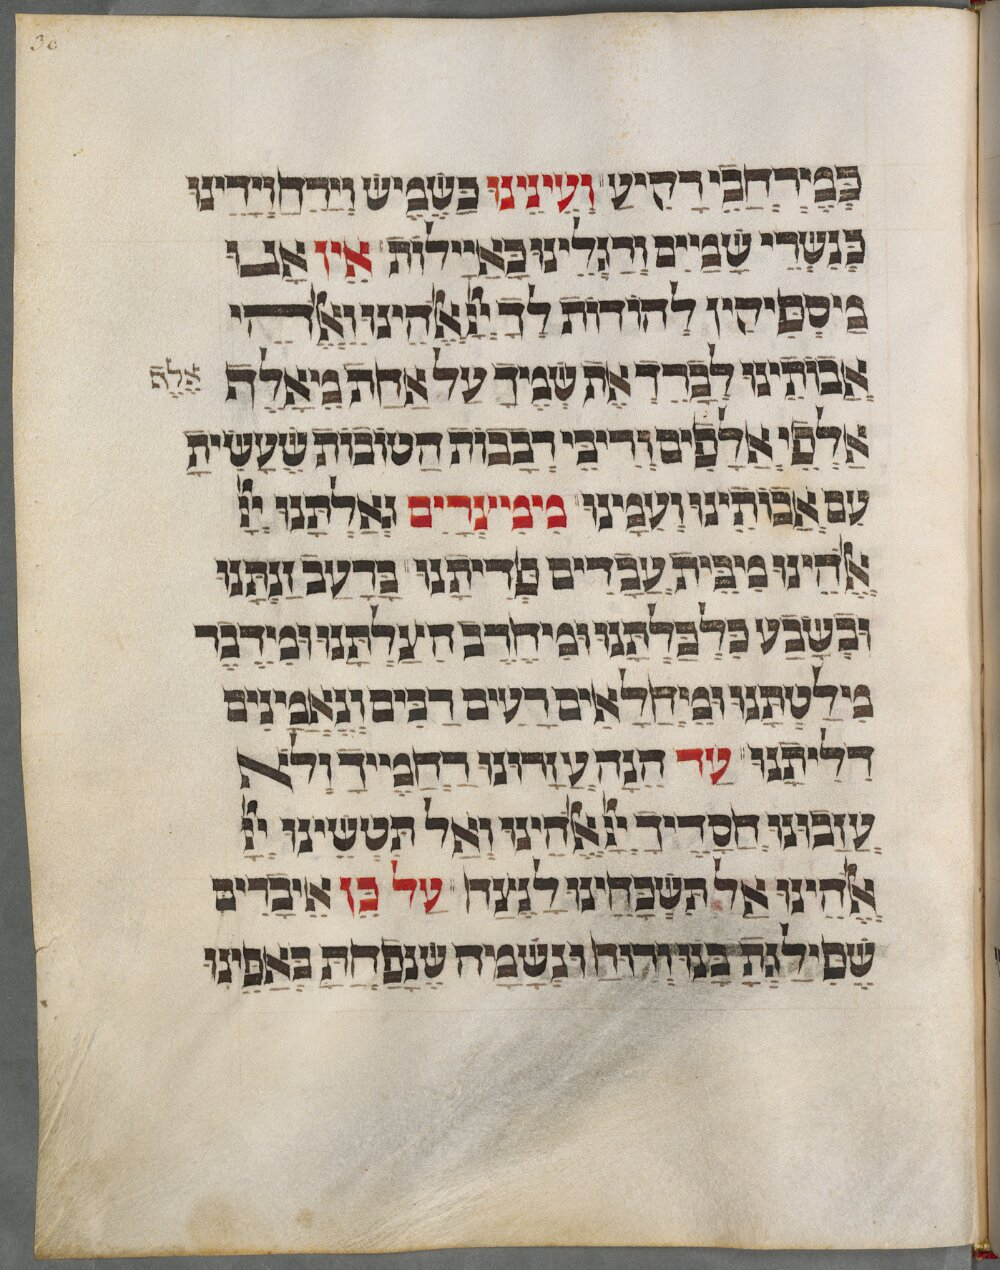 30
כְּמֶירְחֲבֵי רָקִיעַ וְעֵינֵינוּ כַּשֶׁמֶישׁ וְיָרֵחַ וְיָדֵינוּ
כְּנִשְׁרֵי שָׁמַיִים וְרַגְלֵינוּ כָּאַיָילוֹת אֵין אָנוּ
מַיסְפִּיקִין לְהוֹדוֹת לְךָ יְיָ אֱלֹהֵינוּ וֵאלֹהֵי
אֲבוֹתֵינוּ לְבָרֵךְ אֶת שְׁמֶיךָ עַל אַחַת מֵיאֶלֶף
אֶלֶף
אַלְפֵי אֲלָפִים וְרִיבֵּי רְבָבוֹת הַטוֹבוֹת שֶׁעָשִׂיתָ
עִם אֲבוֹתֵינוּ וְעִמָנוּ מִימִיצְרַיִם גְאַלְתָּנוּ יְיָ
אֱלֹהֵינוּ מִיבֵּית עֲבָדִים פְּדִיתָנוּ בְּרָעָב זַנְתָּנוּ
וּבְשָׂבָע כִּלְכַּלְתָּנוּ וּמֵיחֶרֶב הִיצַלְתָּנוּ וּמִידֶבֶר
מִילַטְתָּנוּ וּמֵיחֳלָאִים רָעִים רַבִּים וְנֶאֱמָנִים
דִלִיתָנוּ עַד הֵנָּה עֲזָרוּנוּ רַחֲמֶייךָ וְלֹא
עֲזָבוּנוּ חֲסָדֶיךָ יְיָ אֱלֹהֵינוּ וְאַל תִּטְשֵׁינוּ יְיָ
אֱלֹהֵינוּ אַל תִּשְׁכָּחֵינוּ לָנֶצַח עַל כֵּן אֵיבָרִים
שֶׁפִּילַגְתָּ בָּנוּ וְרוּחַ וּנְשָׁמָה שֶׁנָפַחְתָּ בְּאַפֵּינוּ